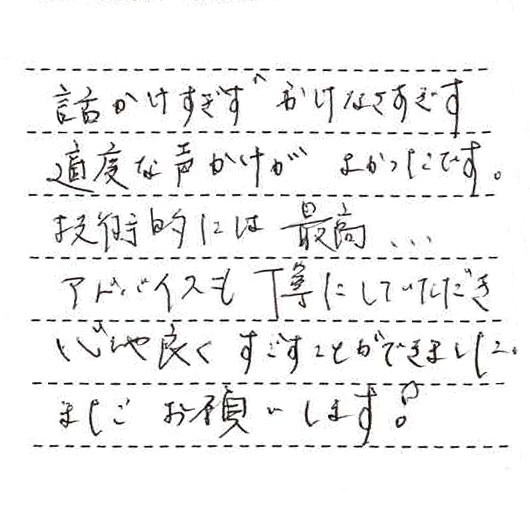 話かけすぎず かけなさすぎず
適度な声かけが よかったです。
技術的には 最高...
アドバイスも 丁寧にしていただき
心地良く すごすことができました。
また お願いします!